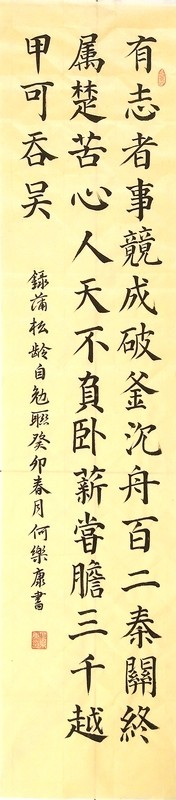 有志者事競成破釜沉舟百二秦關終
属楚苦心人天不負卧薪嘗膽三千越
甲可吞吴
錄蒲松龄自勉聯癸卯春月何樂康書